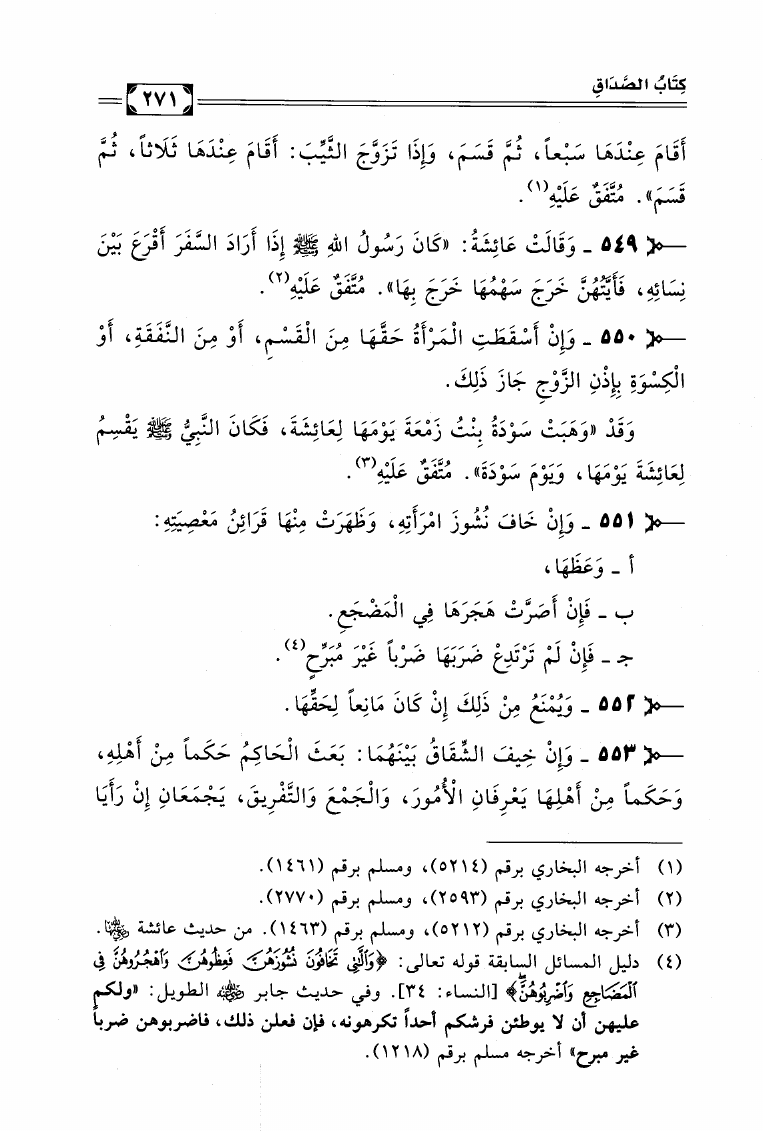 كِتَابُ الصَّدَاقِ
٢٧١
أَقَامَ عِنْدَهَا سَبْعاً، ثُمَّ قَسَمَ، وَإِذَا تَزَوَّجَ الثَّيِّبَ: أَقَامَ عِنْدَهَا ثَلَاثاً، ثُمَّ
قَسَمَ». مُتَّفَقٌ عَلَيْهِ(١).
٥٤٩ ـ وَقَالَتْ عَائِشَةُ: «كَانَ رَسُولُ اللهِ ﷺ إِذَا أَرَادَ السَّفَرَ أَقْرَعَ بَيْنَ
نِسَائِهِ، فَأَيَّتُهُنَّ خَرَجَ سَهْمُهَا خَرَجَ بِهَا». مُتَّفَقٌ عَلَيْهِ(٢).
٥٥٠ ـ وَإِنْ أَسْقَطَتِ الْمَرْأَةُ حَقَّهَا مِنَ الْقَسْمِ، أَوْ مِنَ النَّفَقَةِ، أَوْ
الْكِسْوَةِ بِإِذْنِ الزَّوْجِ جَازَ ذَلِكَ.
وَقَدْ «وَهَبَتْ سَوْدَةُ بِنْتُ زَمْعَةَ يَوْمَهَا لِعَائِشَةَ، فَكَانَ النَّبِيُّ ﷺ يَقْسِمُ
لِعَائِشَةَ يَوْمَهَا، وَيَوْمَ سَوْدَةَ». مُتَّفَقٌ عَلَيْهِ(٣).
٥٥١ ـ وَإِنْ خَافَ نُشُوزَ امْرَأَتِهِ، وَظَهَرَتْ مِنْهَا قَرَائِنُ مَعْصِيَتِهِ:
أ ـ وَعَظَهَا،
ب ـ فَإِنْ أَصَرَّتْ هَجَرَهَا فِي الْمَضْجَعِ.
جـ ـ فَإِنْ لَمْ تَرْتَدِعْ ضَرَبَهَا ضَرْباً غَيْرَ مُبَرِّحٍ(٤).
٥٥٢ ـ وَيُمْنَعُ مِنْ ذَلِكَ إِنْ كَانَ مَانِعاً لِحَقِّهَا.
٥٥٣ ـ وَإِنْ خِيفَ الشِّقَاقُ بَيْنَهُمَا: بَعَثَ الْحَاكِمُ حَكَماً مِنْ أَهْلِهِ،
وَحَكَماً مِنْ أَهْلِهَا يَعْرِفَانِ الْأُمُورَ، وَالْجَمْعَ وَالتَّفْرِيقَ، يَجْمَعَانِ إِنْ رَأَيَا
(١) أخرجه البخاري برقم (٥٢١٤)، ومسلم برقم (١٤٦١).
(٢) أخرجه البخاري برقم (٢٥٩٣)، ومسلم برقم (٢٧٧٠).
(٣) أخرجه البخاري برقم (٥٢١٢)، ومسلم برقم (١٤٦٣). من حديث عائشة رضي الله عنها.
(٤) دليل المسائل السابقة قوله تعالى: ﴿وَٱلَّٰتِي تَخَافُونَ نُشُوزَهُنَّ فَعِظُوهُنَّ وَٱهْجُرُوهُنَّ فِي
ٱلْمَضَاجِعِ وَٱضْرِبُوهُنَّ﴾ [النساء: ٣٤]. وفي حديث جابر رضي الله عنه الطويل: «ولكم
عليهن أن لا يوطئن فرشكم أحداً تكرهونه، فإن فعلن ذلك، فاضربوهن ضرباً
غير مبرح» أخرجه مسلم برقم (١٢١٨).